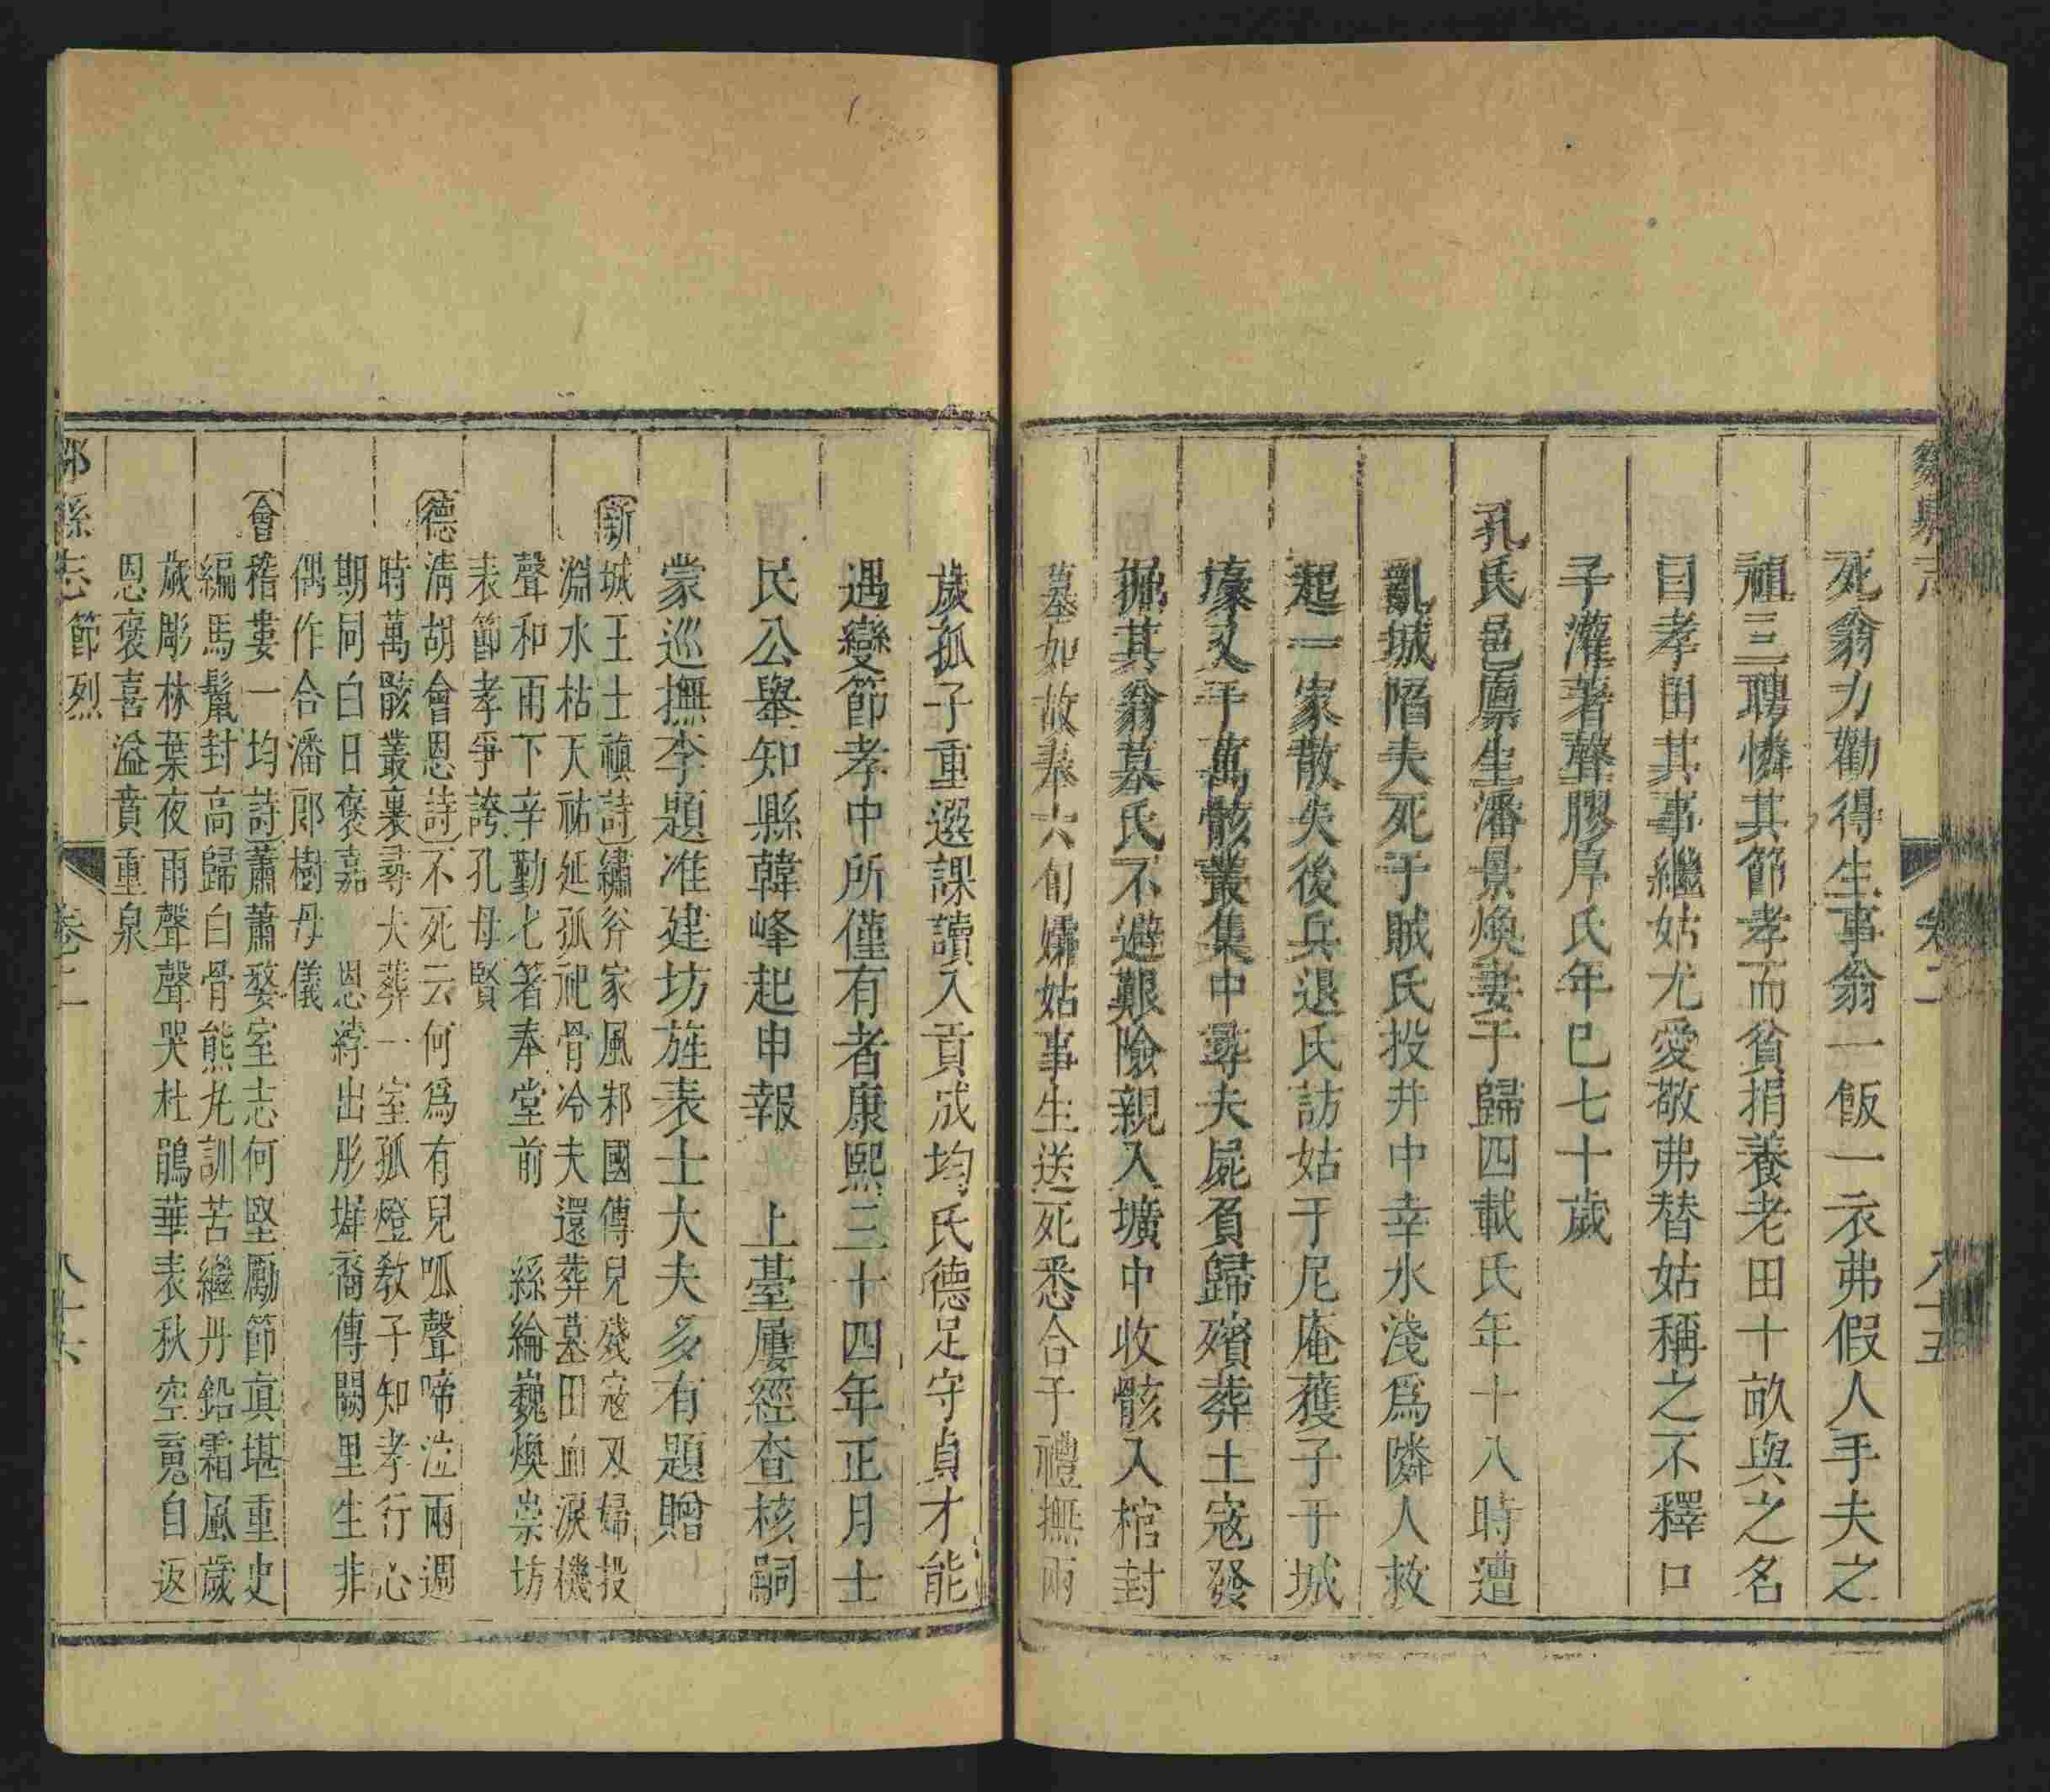 死翁力勸得生事翁一飯一衣弗假人手夫之
祖三聘憐其節孝而貧捐養老田十畝與之名
曰孝田其事繼姑尤愛敬弗替姑稱之不釋口
子灌著聲膠庠氏年已七十歲
孔氏邑廪生潘景煥妻于歸四載氏年十八時遭
亂城陷夫死于賊氏投井中幸水淺爲隣人救
起一家散失後兵退氏訪姑于尼庵獲子于城
壕又于萬骸叢集中尋夫屍負歸殯葬土寇發
掘其翁墓氏不避艱險親入壙中收骸入棺封
墓如故奉六旬孀姑事生送死悉合于禮撫兩
歲孤子重選課讀入貢成均氏德足守貞才能
遇變節孝中所僅有者康熙三十四年正月士
民公舉知縣韓峰起申報 上臺屢經查核嗣
蒙巡撫李題准建坊旌表士大夫多有題贈
新城王士禛詩繡斧家風邾國傳兒殘寇刄婦投
淵水枯天祐延孤祀骨冷夫還葬墓田血淚機
聲和雨下辛勤匕箸奉堂前 絲綸巍煥崇坊
表節孝爭誇孔母賢
德清胡會恩詩不死云何爲有兒呱聲啼泣兩週
時萬骸叢裏尋夫葬一室孤燈教子知孝行心
期同白日褒嘉 恩綍出彤墀裔傳闕里生非
偶作合潘郎樹母儀
會稽婁一均詩蕭蕭嫠室志何堅勵節眞堪重史
編馬鬣封高歸白骨熊丸訓苦繼丹鉛霜風歲
歲彫林葉夜雨聲聲哭杜鵑華表秋空䰟自返
恩褒喜溢賁重泉
節烈
卷之二